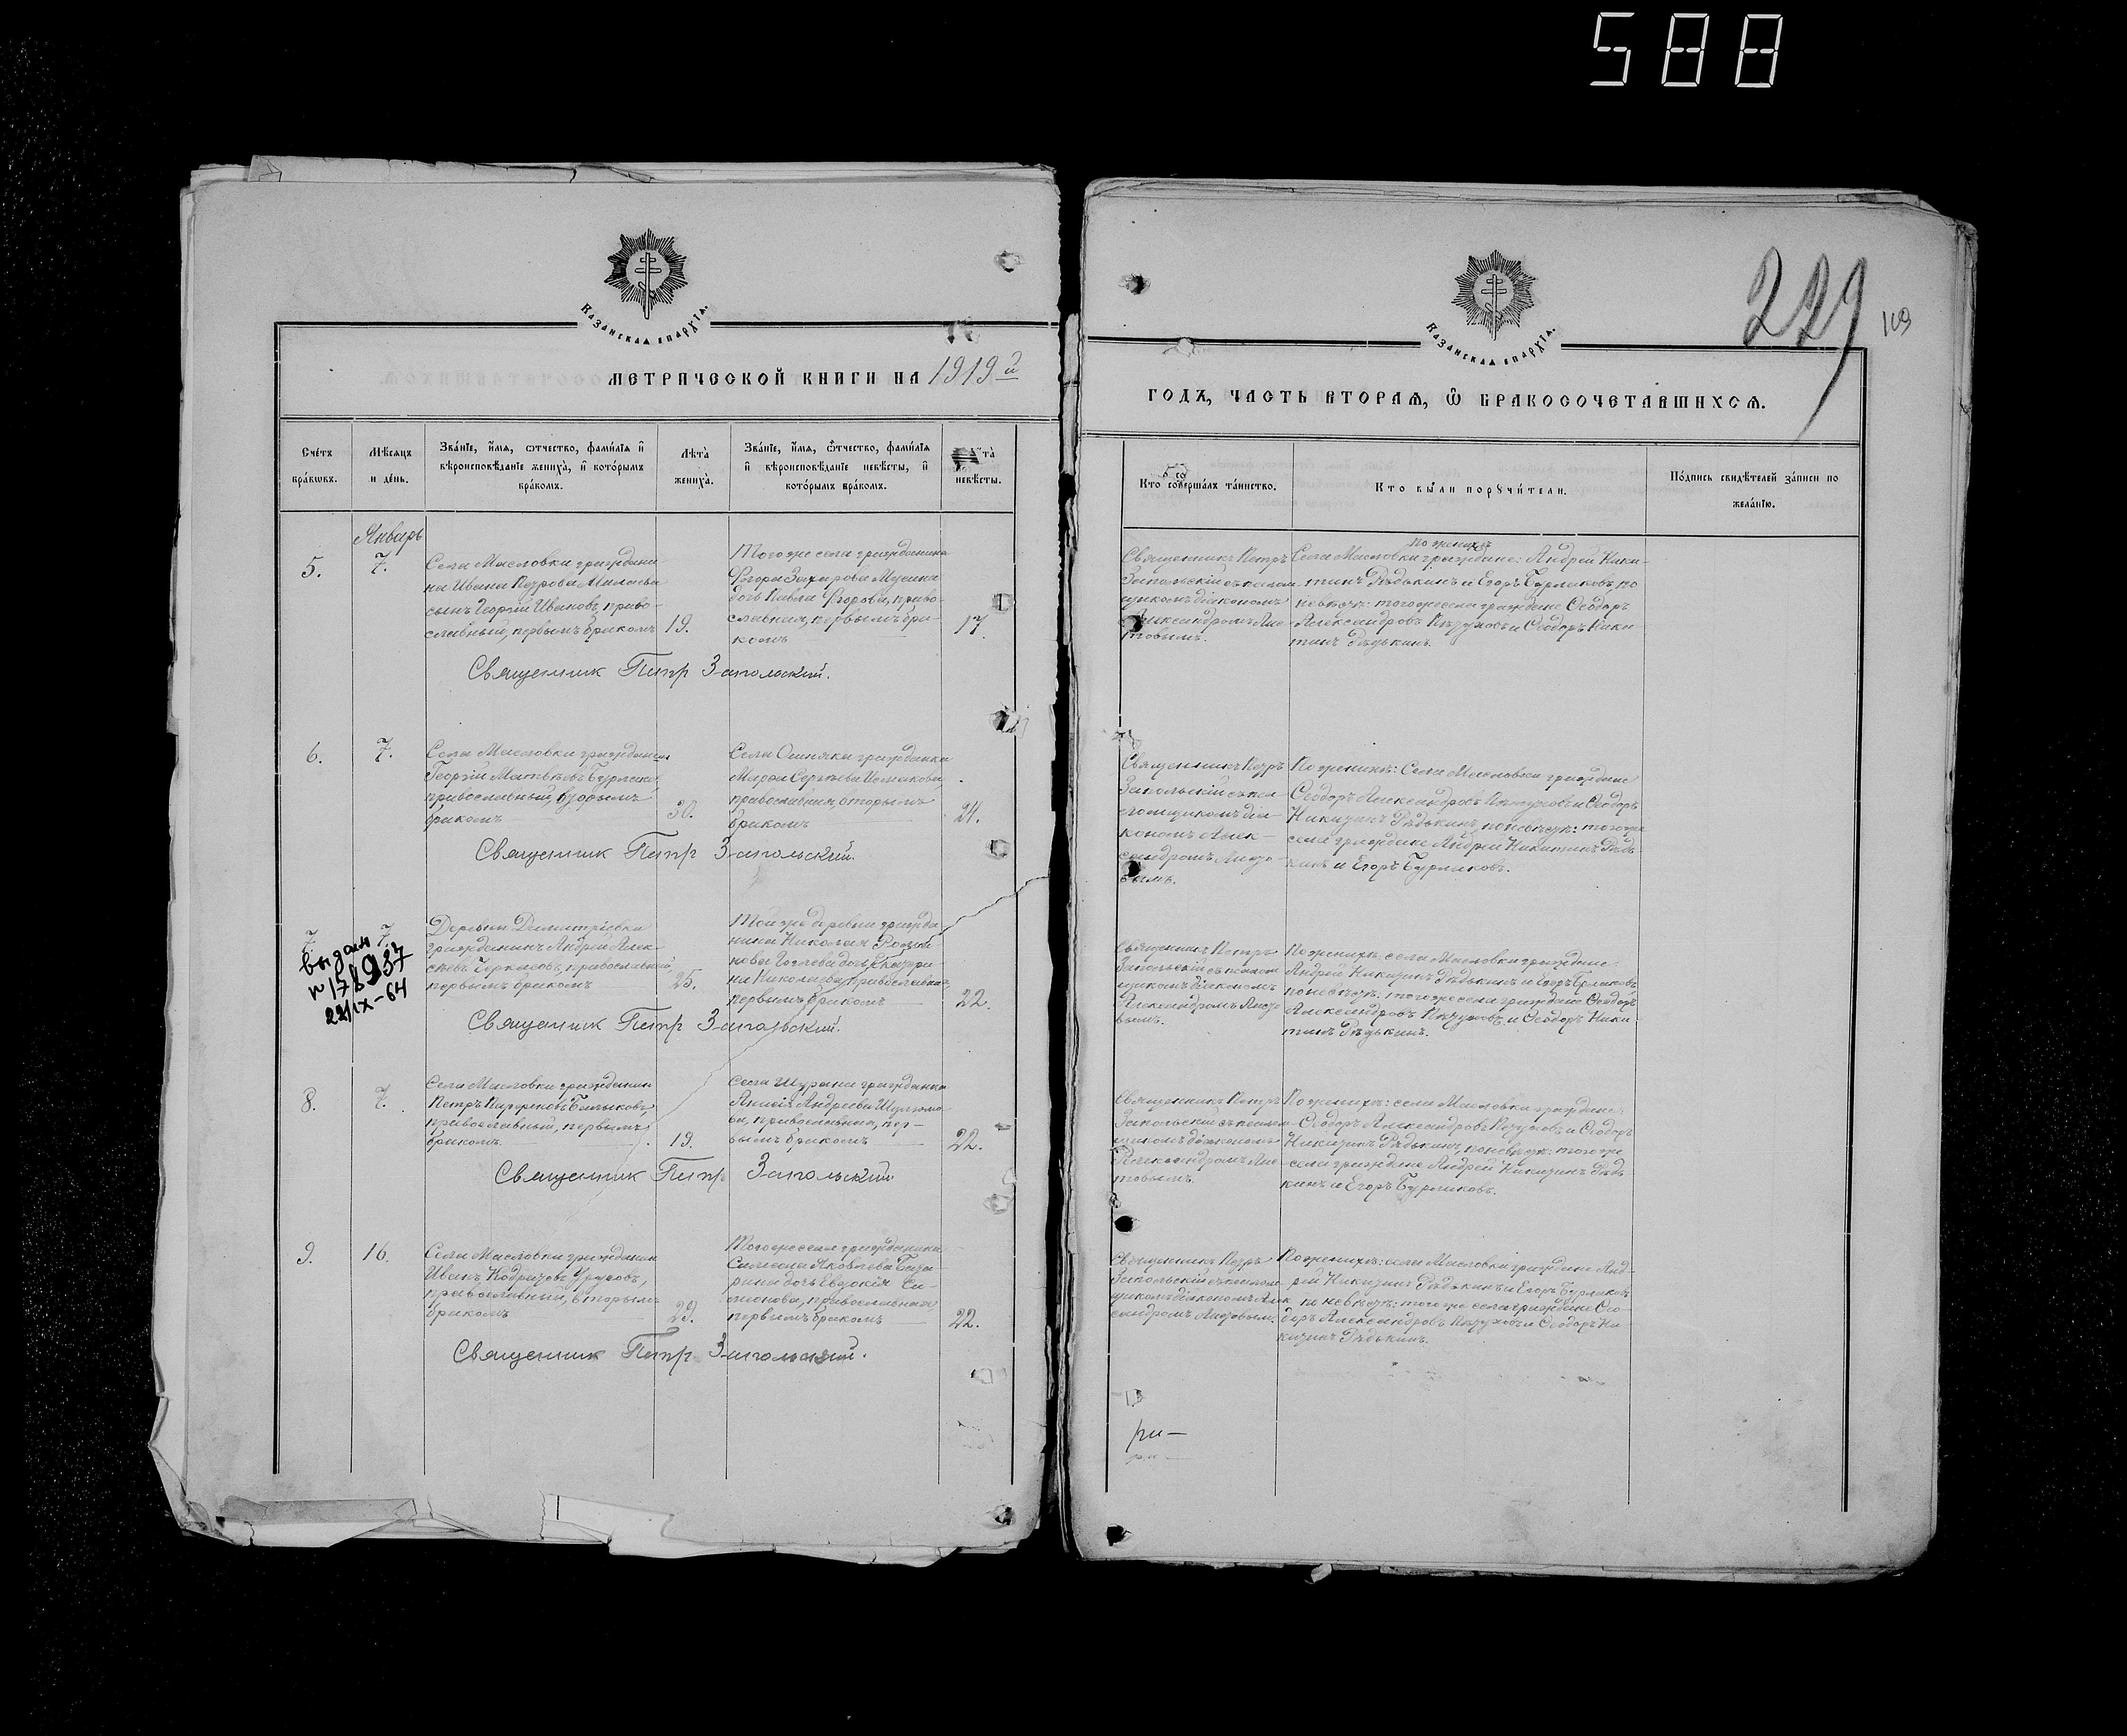 588
Казанская епархїѧ.
МЕТРИЧЕСКОЙ КНИГИ НА 1919 й
Сче́тъ бра́кѡвъ.
Мѣ́сяцъ и де́нь.
Зва́нїе, и́мя, ѻтчество, фами́лїя и вѣроисповѣ́данїе жениха̀, и кото́рымъ бра́комъ.
Лѣ́та жениха̀.
Зва́нїе, и́мя, ѻтчество, фами́лїя и вѣроисповѣ́данїе невѣ́сты, и кото́рымъ бра́комъ.
невѣ́сты.
Январь
5.
7.
Села Масловки граждани-
на Ивана Петрова
сынъ Георгій Ивановъ, право-
славный, первымъ бракомъ
19.
Тогоже села гражданина
Егора Захарова
дочь Павла Егорова, право-
славная, первымъ бра-
комъ
17.
Священник Петр Запольский.
6.
7.
Села Масловки гражданин
Георгій Матвѣевъ
православный, вторымъ
бракомъ
30.
Села Омняки гражданка
Марѳа Сергѣева
православная, вторымъ
бракомъ
24.
Священник Петр Запольский.
7.
7.
выдан
№178937
22/IX-64
Деревни Димитріевки
гражданинъ Андрей Алек-
сѣевъ православный,
первымъ бракомъ
25.
Той же деревни гражда
нина Николая
дочь Екатери-
на Николаева, православная,
первымъ бракомъ
22.
Священник Петр Запольский.
8.
7.
Села Масловки гражданин
Петръ
православный, первымъ
бракомъ.
19.
Села Шурана гражданка
Анисія Андреева
ва, православная, пер-
вымъ бракомъ
22.
Священник Петр Запольский
9.
16.
Села Масловки гражданин
Иванъ
православный, вторымъ
бракомъ
29.
Тогоже села гражданина
Симеона Яковлева
дочь Евдокія Си-
меонова, православная
первымъ бракомъ
22.
Священник Петр Запольский.
Казанская епархїѧ.
229
109
ГОДЪ, ЧАСТЬ ВТОРАѦ, Ѡ БРАКОСОЧЕТАВШИХСѦ.
Кто соверша́лъ та́инство.
Кто бы́ли порꙋчи́тели.
По́дпись свидѣ́телей за́писи по жела́нїю.
Священникъ Петръ
Запольскій съ псалом-
щикомъ діакономъ
Александромъ Лис-
товымъ.
По женихѣ
Села Масловки граждане: Андрей Ники-
тинъ Рѣдькинъ и Егоръ Бурлаковъ, по
невѣстѣ: тогоже села граждане Ѳеодоръ
Александровъ Пѣтуховъ и Ѳеодоръ Ники-
тинъ Рѣдькинъ.
Священникъ Петръ
Запольскій съ пса-
ломщикомъ діа-
кономъ Алек-
сандромъ Листо-
вымъ.
По женихѣ: Села Масловки граждане
Ѳеодоръ Александровъ Пѣтуховъ и Ѳеодоръ
Никитинъ Рѣдькинъ, по невѣстѣ: тогоже
села граждане Андрей Никитинъ Рѣдь-
кинъ и Егоръ Бурлаковъ.
Священникъ Петръ
Запольскій съ псалом
щикомъ діакономъ
Александромъ Листо
вымъ.
По женихѣ: села Масловки граждане
Андрей Никитинъ Рѣдькинъ и Егоръ Бурлаковъ
по невѣстѣ: тогоже села граждане Ѳеодоръ
Александровъ Пѣтуховъ и Ѳеодоръ Ники
тинъ Рѣдькинъ.
Священникъ Петръ
Запольскій съ псалом-
щикомъ діакономъ
Александромъ Лис-
товымъ.
По женихѣ: села Масловки граждане:
Ѳеодоръ Александровъ Пѣтуховъ и Ѳеодоръ
Никитинъ Рѣдькинъ, по невѣстѣ: тогоже
села граждане Андрей Никитинъ Рѣдь
кинъ и Егоръ Бурлаковъ.
Священникъ Петръ
Запольскій съ псалом-
щикомъ діакономъ Алек
сандромъ Листовымъ.
По женихѣ: села Масловки граждане Анд-
рей Никитинъ Рѣдькинъ и Егоръ Бурлаковъ
по невѣстѣ: тогоже села граждане Ѳео-
доръ Александровъ Пѣтуховъ и Ѳеодоръ Ни-
китинъ Рѣдькинъ.